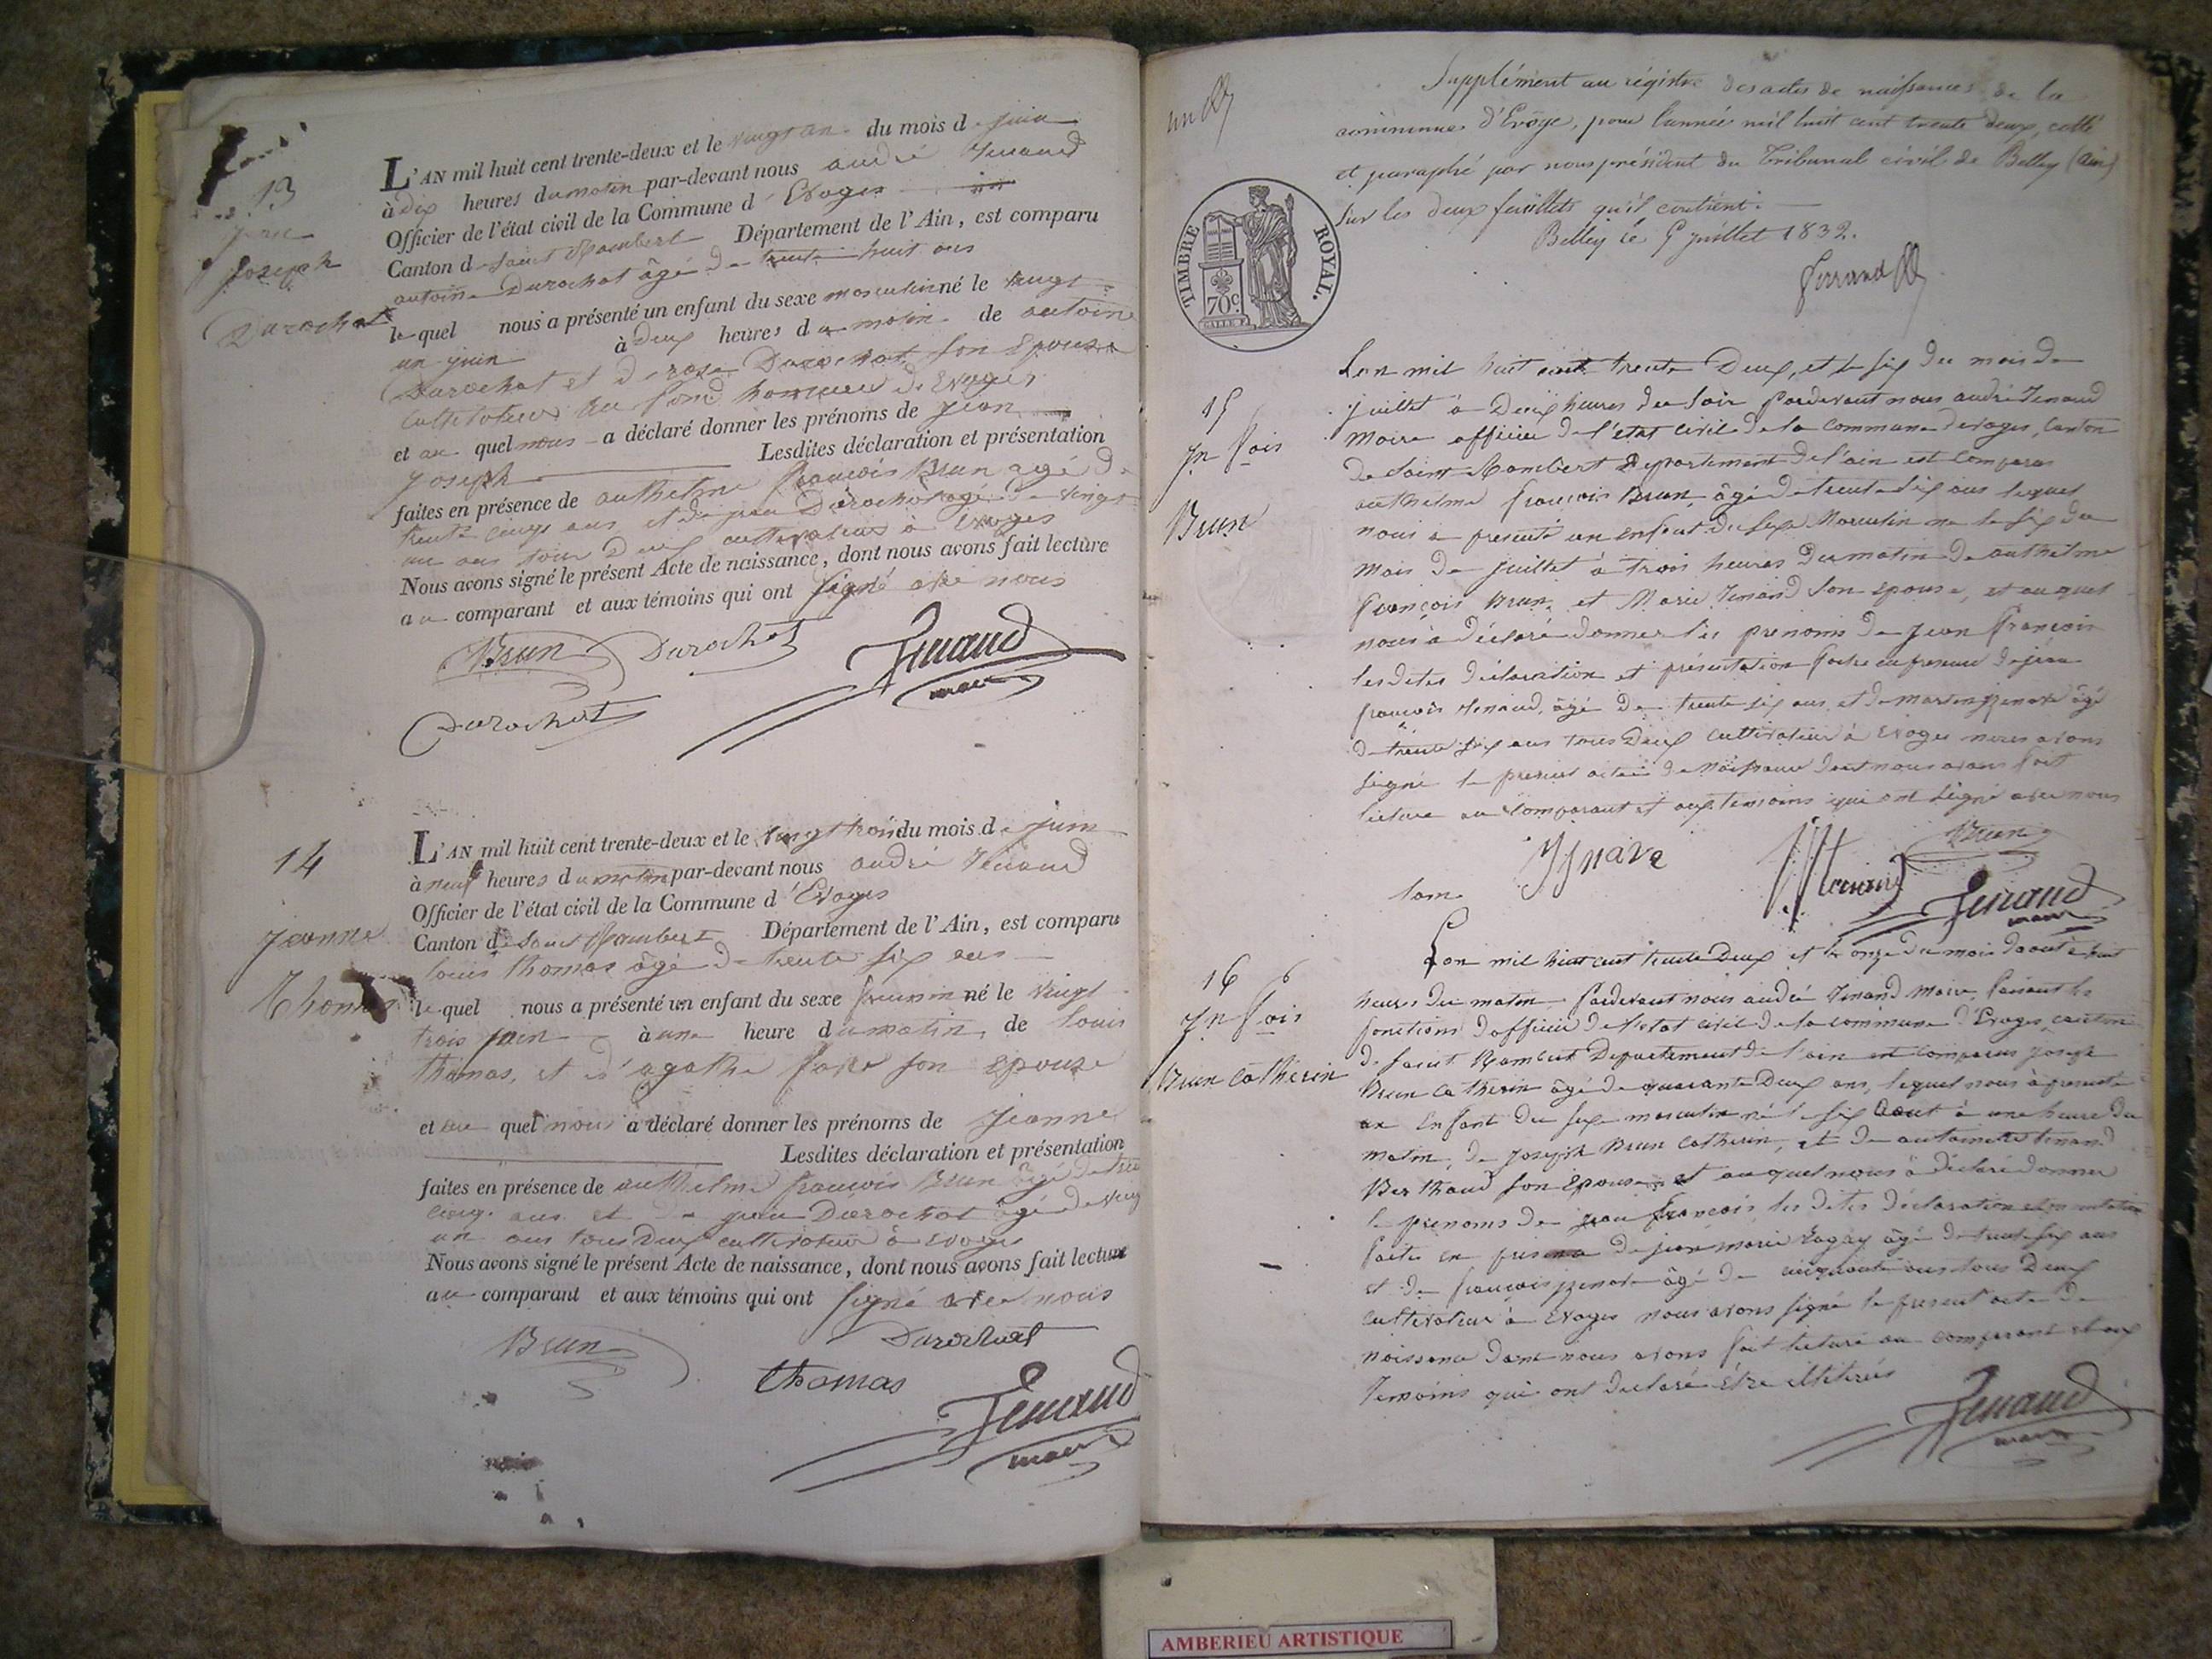 13
Jean
Joseph
Durochat
L'AN mil huit cent trente-deux et le vingt un du mois de juin
à dix heures du matin par-devant nous andré Tenand
Officier de l'état civil de la Commune d'Evoges
Canton de Saint Rambert Département de l'Ain, est comparu
antoine Durochat âgé de trente huit ans
lequel nous a présenté un enfant du sexe masculin né le vingt
un juin à deux heures du matin de antoine
Durochat et de rose Durochat son epouse
cultivateur au fond hameau de Evoges
et au quel nous a déclaré donner les prénoms de jean
joseph Lesdites déclaration et présentation
faites en présence de anthelme françois Brun agé de
trente cinq ans et de jean Durochat agé de vingt
un ans tous deux cultivateur à Evoges
Nous avons signé le présent Acte de naissance, dont nous avons fait lecture
au comparant et aux témoins qui ont signé avec nous
Brun Durochat Tenand
maire
Durochat
14
Jeanne
Thomas
L'AN mil huit cent trente-deux et le vingt trois du mois de juin
à neuf heures du matin par-devant nous andré Tenand
Officier de l'état civil de la Commune d'Evoges
Canton de Saint Rambert Département de l'Ain, est comparu
louis thomas âgé de trente six ans
lequel nous a présenté un enfant du sexe feminin né le vingt
trois juin à une heure du matin de louis
thomas, et d'agathe son epouse
et au quel nous a déclaré donner les prénoms de jeanne
Lesdites déclaration et présentation
faites en présence de anthelme françois Brun âgé de trente
cinq ans et de jean Durochat âgé de vingt
un ans tous deux cultivateur à Evoges
Nous avons signé le présent Acte de naissance, dont nous avons fait lecture
au comparant et aux témoins qui ont signé avec nous
Brun Durochat
thomas Tenand
maire
Supplément au régistre des actes de naissances de la
commune d'Evoge, pour l'année mil huit cent trente deux, cotté
et paraphé par nous président du Tribunal civil de Belley (Ain)
sur les deux feuillets qu'il contient.
Belley le 5 juillet 1832.
TIMBRE ROYAL.
70c.
15
Jn fois
Brun
Lan mil huit cent trente Deux, et le six du mois de
juillet à Deux heures du soir pardevant nous andré Tenand
maire officier de l'état civil de la commune d'evoges, canton
de Saint Rambert Departement de l'ain est comparu
anthelme françois Brun, âgé de trente six ans lequel
nous a presenté un enfant du sexe Masculin né le six du
mois de juillet à trois heures du matin de anthelme
françois Brun, et Marie Tenand son epouse, et auquel
nous à déclaré donner les prenoms de jean françois
lesdites déclaration et présentation faite en presence de jean
françois Tenand, âgé de trente six ans et de âgé
de trente six ans tous Deux cultivateur à Evoges nous avons
signé le present acte de Naissance dont nous avons fait
lecture au comparant et aux temoins qui ont signé avec nous
Brun
Tenand
maire
16
Jn fois
Brun catherin
Lan mil huit cent trente Deux et le onze du mois daout à huit
heures du matin pardevant nous andré Tenand Maire faisant les
fonctions dofficier de l'etat civil de la commune d'Evoges, canton
de Saint Rambert Departement de l'ain est comparu joseph
Brun catherin âgé de quarante Deux ans, lequel nous à presenté
un Enfant du sexe masculin né le six aout à une heure du
matin, de joseph Brun catherin, et de antoinette Tenand
Berthaud son epouse et auquel nous à déclaré donner
le prenoms de jean françois, les dites déclaration et presentation
faites en presence de jean marie âgé de trente six ans
et de françois âgé de cinquante ans tous Deux
cultivateur à Evoges nous avons signé le present acte de
naissance dont nous avons fait lecture au comparant et aux
temoins qui ont declaré être illitirés
Tenand
maire
AMBERIEU ARTISTIQUE